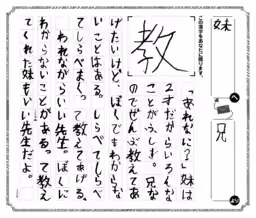 妹
へ
兄
より
この漢字をあなたに贈ります。
教
「あれなに？」妹は
2才だからいろいろな
ことがふしぎ。兄な
のでぜんぶ教えてあ
げたいけど、ぼくでもわからな
いことはある。しらべてしらべ
てしらべまくって教えてあげる。
われながらいい先生。ぼくに
わからないことがある。って教え
てくれた妹もいい先生だよ。